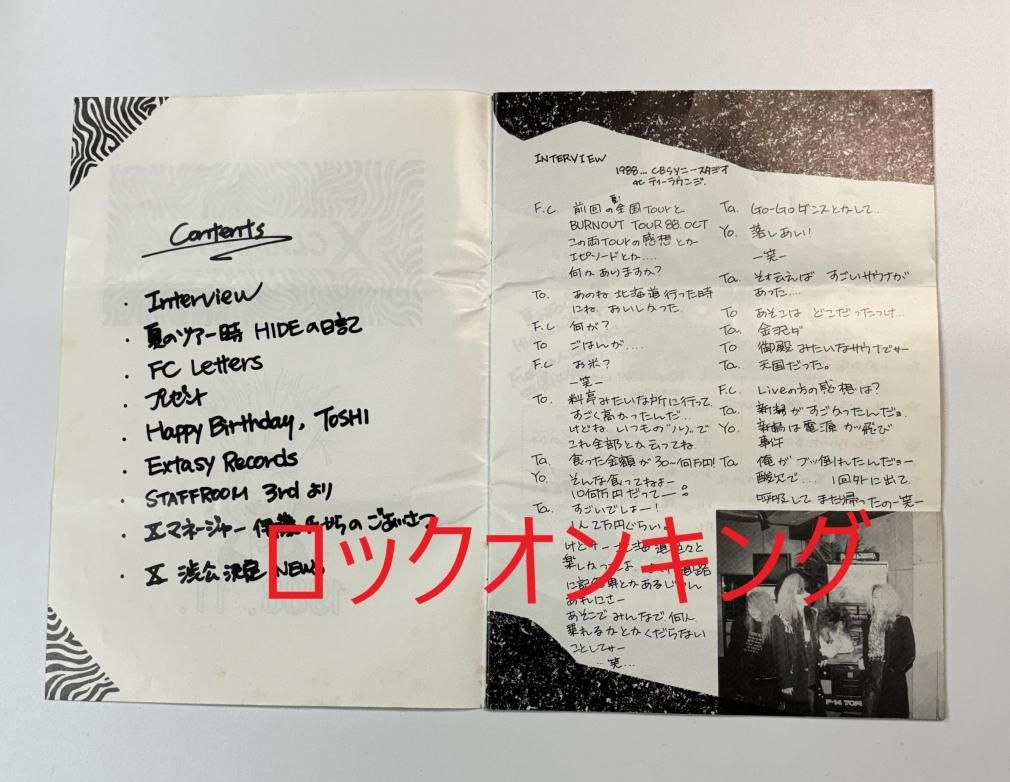 Contents
・Interview
・夏のツアー時 HIDEの日記
・FC Letters
・プレゼント
・Happy Birthday, TOSHI
・Extasy Records
・STAFFROOM 3rdより
・Xマネージャー からのごあいさつ
・X 渋公決定 NEWS
INTERVIEW
1988... CBSソニースタジオ
at ティーラウンジ.
F.C. 前回の夏!全国Tourと
BURNOUT TOUR 88.OCT
この両Tourの感想とか
エピソードとか....
何かありますか?
To. あのね 北海道行った時
にね、おいしかった.
F.C 何が?
To ごはんが....
F.C お米?
―笑―
To. 料亭みたいな所に行って
すごく高かったんだ...
けどね、いつもの"ノリ"で
これ全部とか云ってね
Ta. 食った金額が30〜何万円!
Yo. そんな食ってねよー
10何万円だってー!
Ta. すごいでしょー!
1人で万円ぐらい。
けどサー 北海道 色々と
楽しかったよ、 道路
に とかあるじゃん
あれにさー
あそこでみんなで、何人
乗れるかとかくだらない
ことしてサー
...笑...
Ta. Go-Goダンスとかして...
Yo. 落しあい!
―笑―
Ta. そお云えば すごいサウナが
あった....
To あそこは どこだったっけ...
Ta. 金沢ダ
To 御殿みたいなサウナでサー
Ta. 天国だった。
F.C. Liveの方の感想は?
Ta. 新潟がすごかったんだョ.
Yo. 新潟は電源が飛び
事件
Ta 俺がブッ倒れたんだョー
酸欠で... 1回外に出て、
呼吸して また帰ったの―笑―
F-14 TOM
ロックオンキング